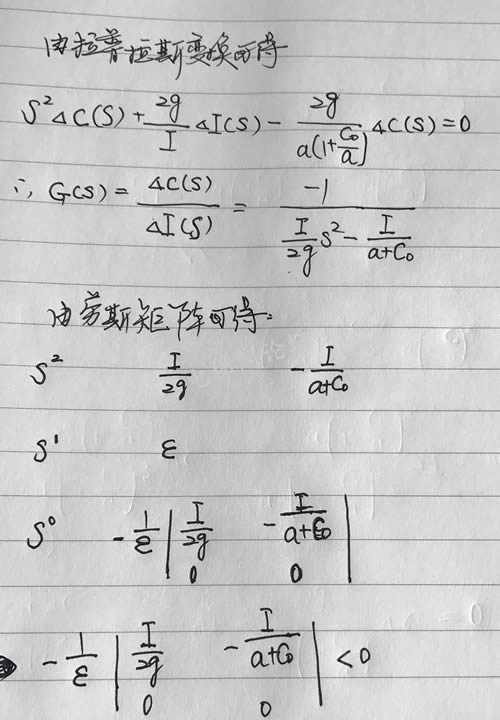 由拉普拉斯变换可得
S²ΔC(S)+2g/I ΔI(S)-2g/(a(1+C₀/a)) ΔC(S)=0
∴ G(S)=ΔC(S)/ΔI(S)=-1/(I/2g S²-I/(a+C₀))
由劳斯矩阵可得:
S² I/2g -I/(a+C₀)
S¹ ε
S⁰ -1/ε | I/2g -I/(a+C₀) |
0 0
-1/ε | I/2g -I/(a+C₀) | <0
0 0